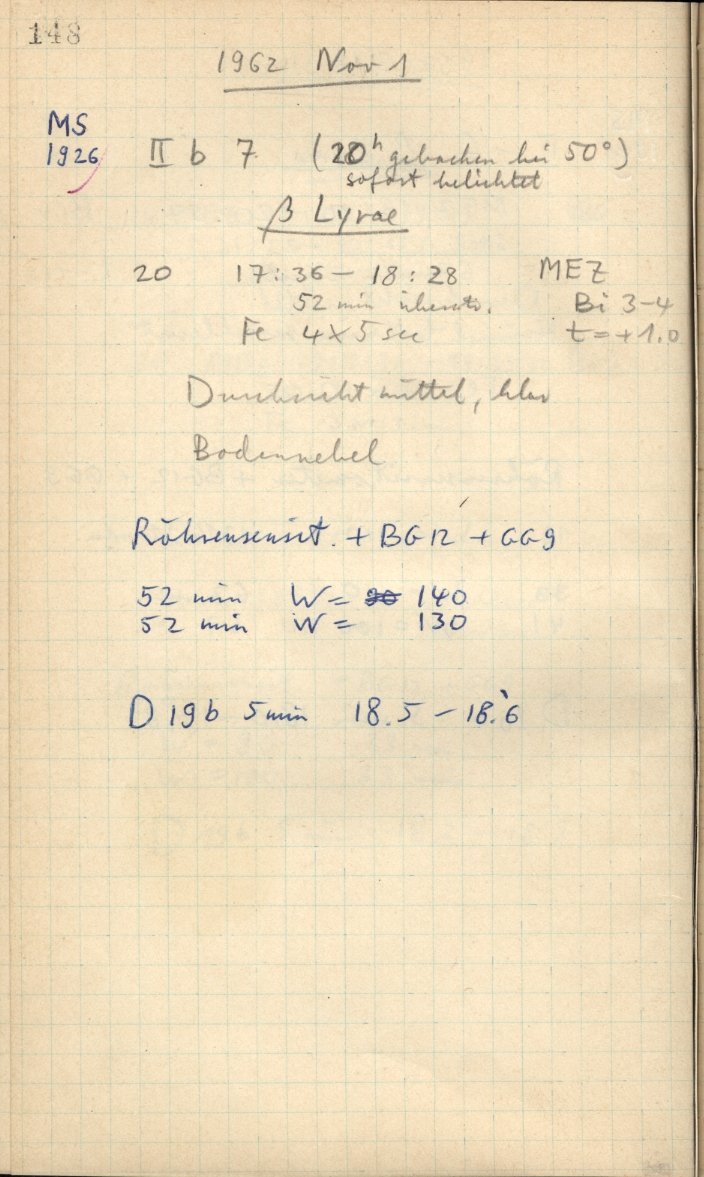 148
1962 Nov 1
MS
1926 II b 7 (20h gebacken bei 50°)
sofort belichtet
β Lyrae
20 17:36 – 18:28 MEZ
52 min Bi 3–4
Fe 4x5 sec t = +1.0
Durchsicht mittel, klar
Bodennebel
Röhrensensit. + BG 12 + GG 9
52 min W = 140
52 min W = 130
D 19b 5 min 18.5 – 18.6